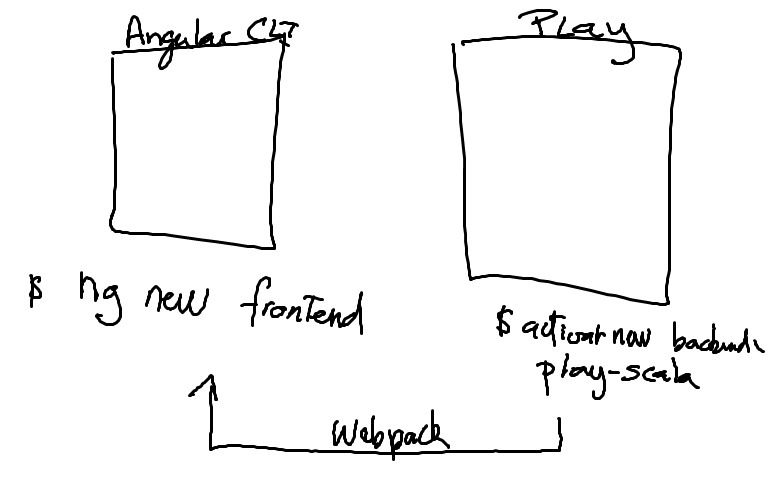 Angular CLI
Play
$ ng new frontend
$ activator new backend
play-scala
Webpack